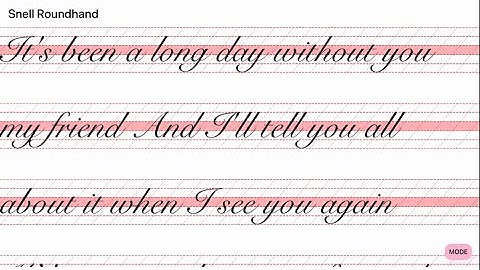 Snell Roundhand
It's been a long day without you
my friend And I'll tell you all
about it when I see you again
MODE